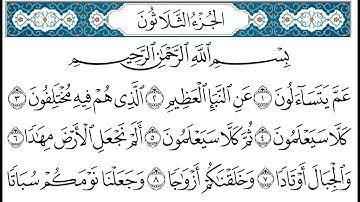 الجُزْءُ الثَّلَاثُونَ
بِسْمِ اللَّهِ الرَّحْمَٰنِ الرَّحِيمِ
عَمَّ يَتَسَاءَلُونَ ١ عَنِ النَّبَإِ الْعَظِيمِ ٢ الَّذِي هُمْ فِيهِ مُخْتَلِفُونَ ٣
كَلَّا سَيَعْلَمُونَ ٤ ثُمَّ كَلَّا سَيَعْلَمُونَ ٥ أَلَمْ نَجْعَلِ الْأَرْضَ مِهَادًا ٦
وَالْجِبَالَ أَوْتَادًا ٧ وَخَلَقْنَاكُمْ أَزْوَاجًا ٨ وَجَعَلْنَا نَوْمَكُمْ سُبَاتًا